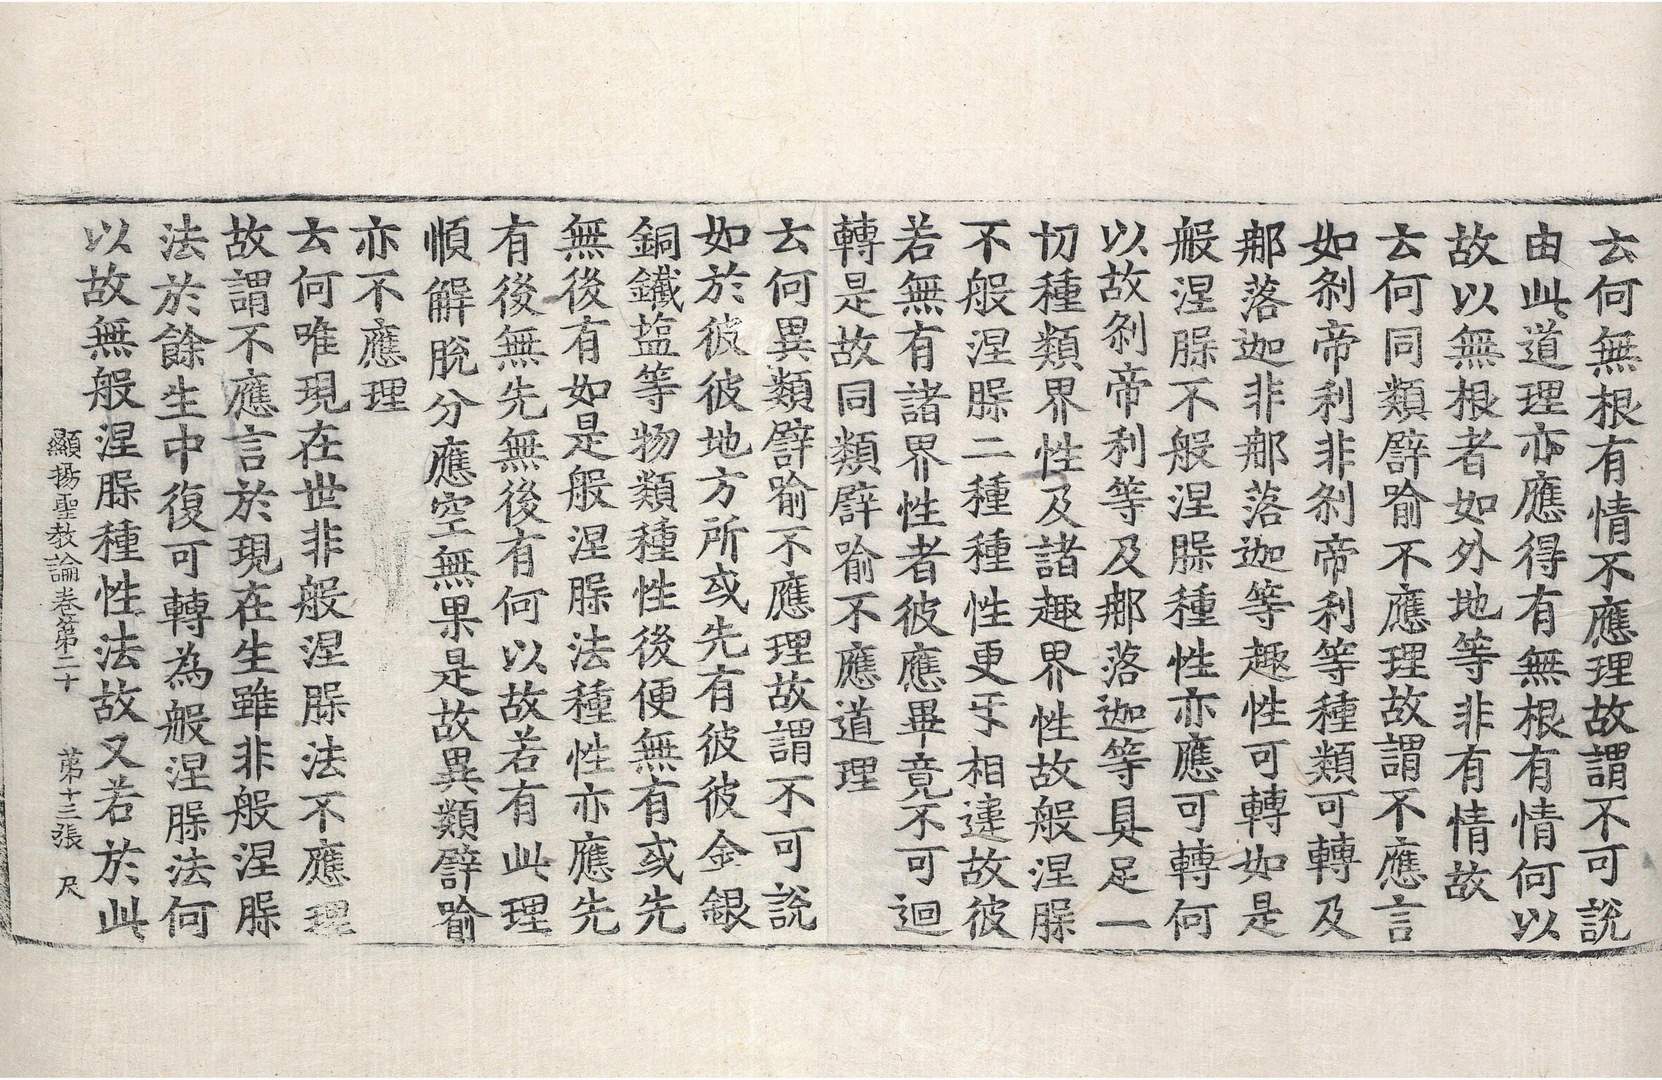 云何無根有情不應理故謂不可說
由此道理亦應得有無根有情何以
故以無根者如外地等非有情故
云何同類譬喻不應理故謂不應言
如剎帝利非剎帝利等種類可轉及
那落迦非那落迦等趣性可轉如是
般涅槃不般涅槃種性亦應可轉何
以故剎帝利等及那落迦等具足一
切種類界性及諸趣界性故般涅槃
不般涅槃二種種性更互相違故彼
若無有諸界性者彼應畢竟不可迴
轉是故同類譬喻不應道理
云何異類譬喻不應理故謂不可說
如於彼彼地方所或先有彼彼金銀
銅鐵塩等物類種性後便無有或先
無後有如是般涅槃法種性亦應先
有後無先無後有何以故若有此理
順解脫分應空無果是故異類譬喻
亦不應理
云何唯現在世非般涅槃法不應理
故謂不應言於現在生雖非般涅槃
法於餘生中復可轉為般涅槃法何
以故無般涅槃種性法故又若於此
顯揚聖教論卷第二十 第十三張 尺